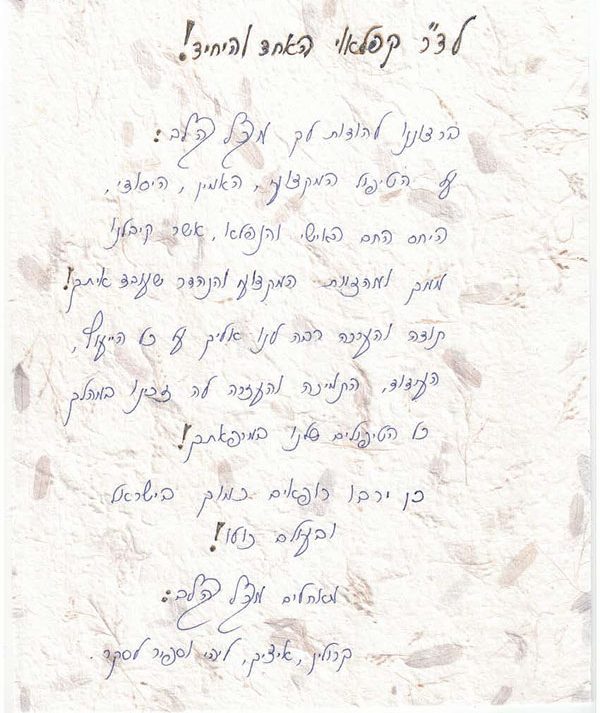 לד"ר קפלאוי האחד והיחיד!
ברצוננו להודות לך מכל הלב:
על הטיפול המקצועי, האמין, היסודי,
היחס החם האישי והנפלא, אשר קיבלנו
ממך ומהצוות המקצועי והנהדר שעובד איתך!
תודה והערכה רבה לנו אליך על כל הייעוץ,
העידוד, התמיכה והעזרה לה זכינו במהלך
כל הטיפולים שלנו במרפאתך!
כן ירבו רופאים כמוך בישראל
ובעולם כולו!
מאחלים מכל הלב:
קרולין, איציק, ליהי וספיר לסקר.